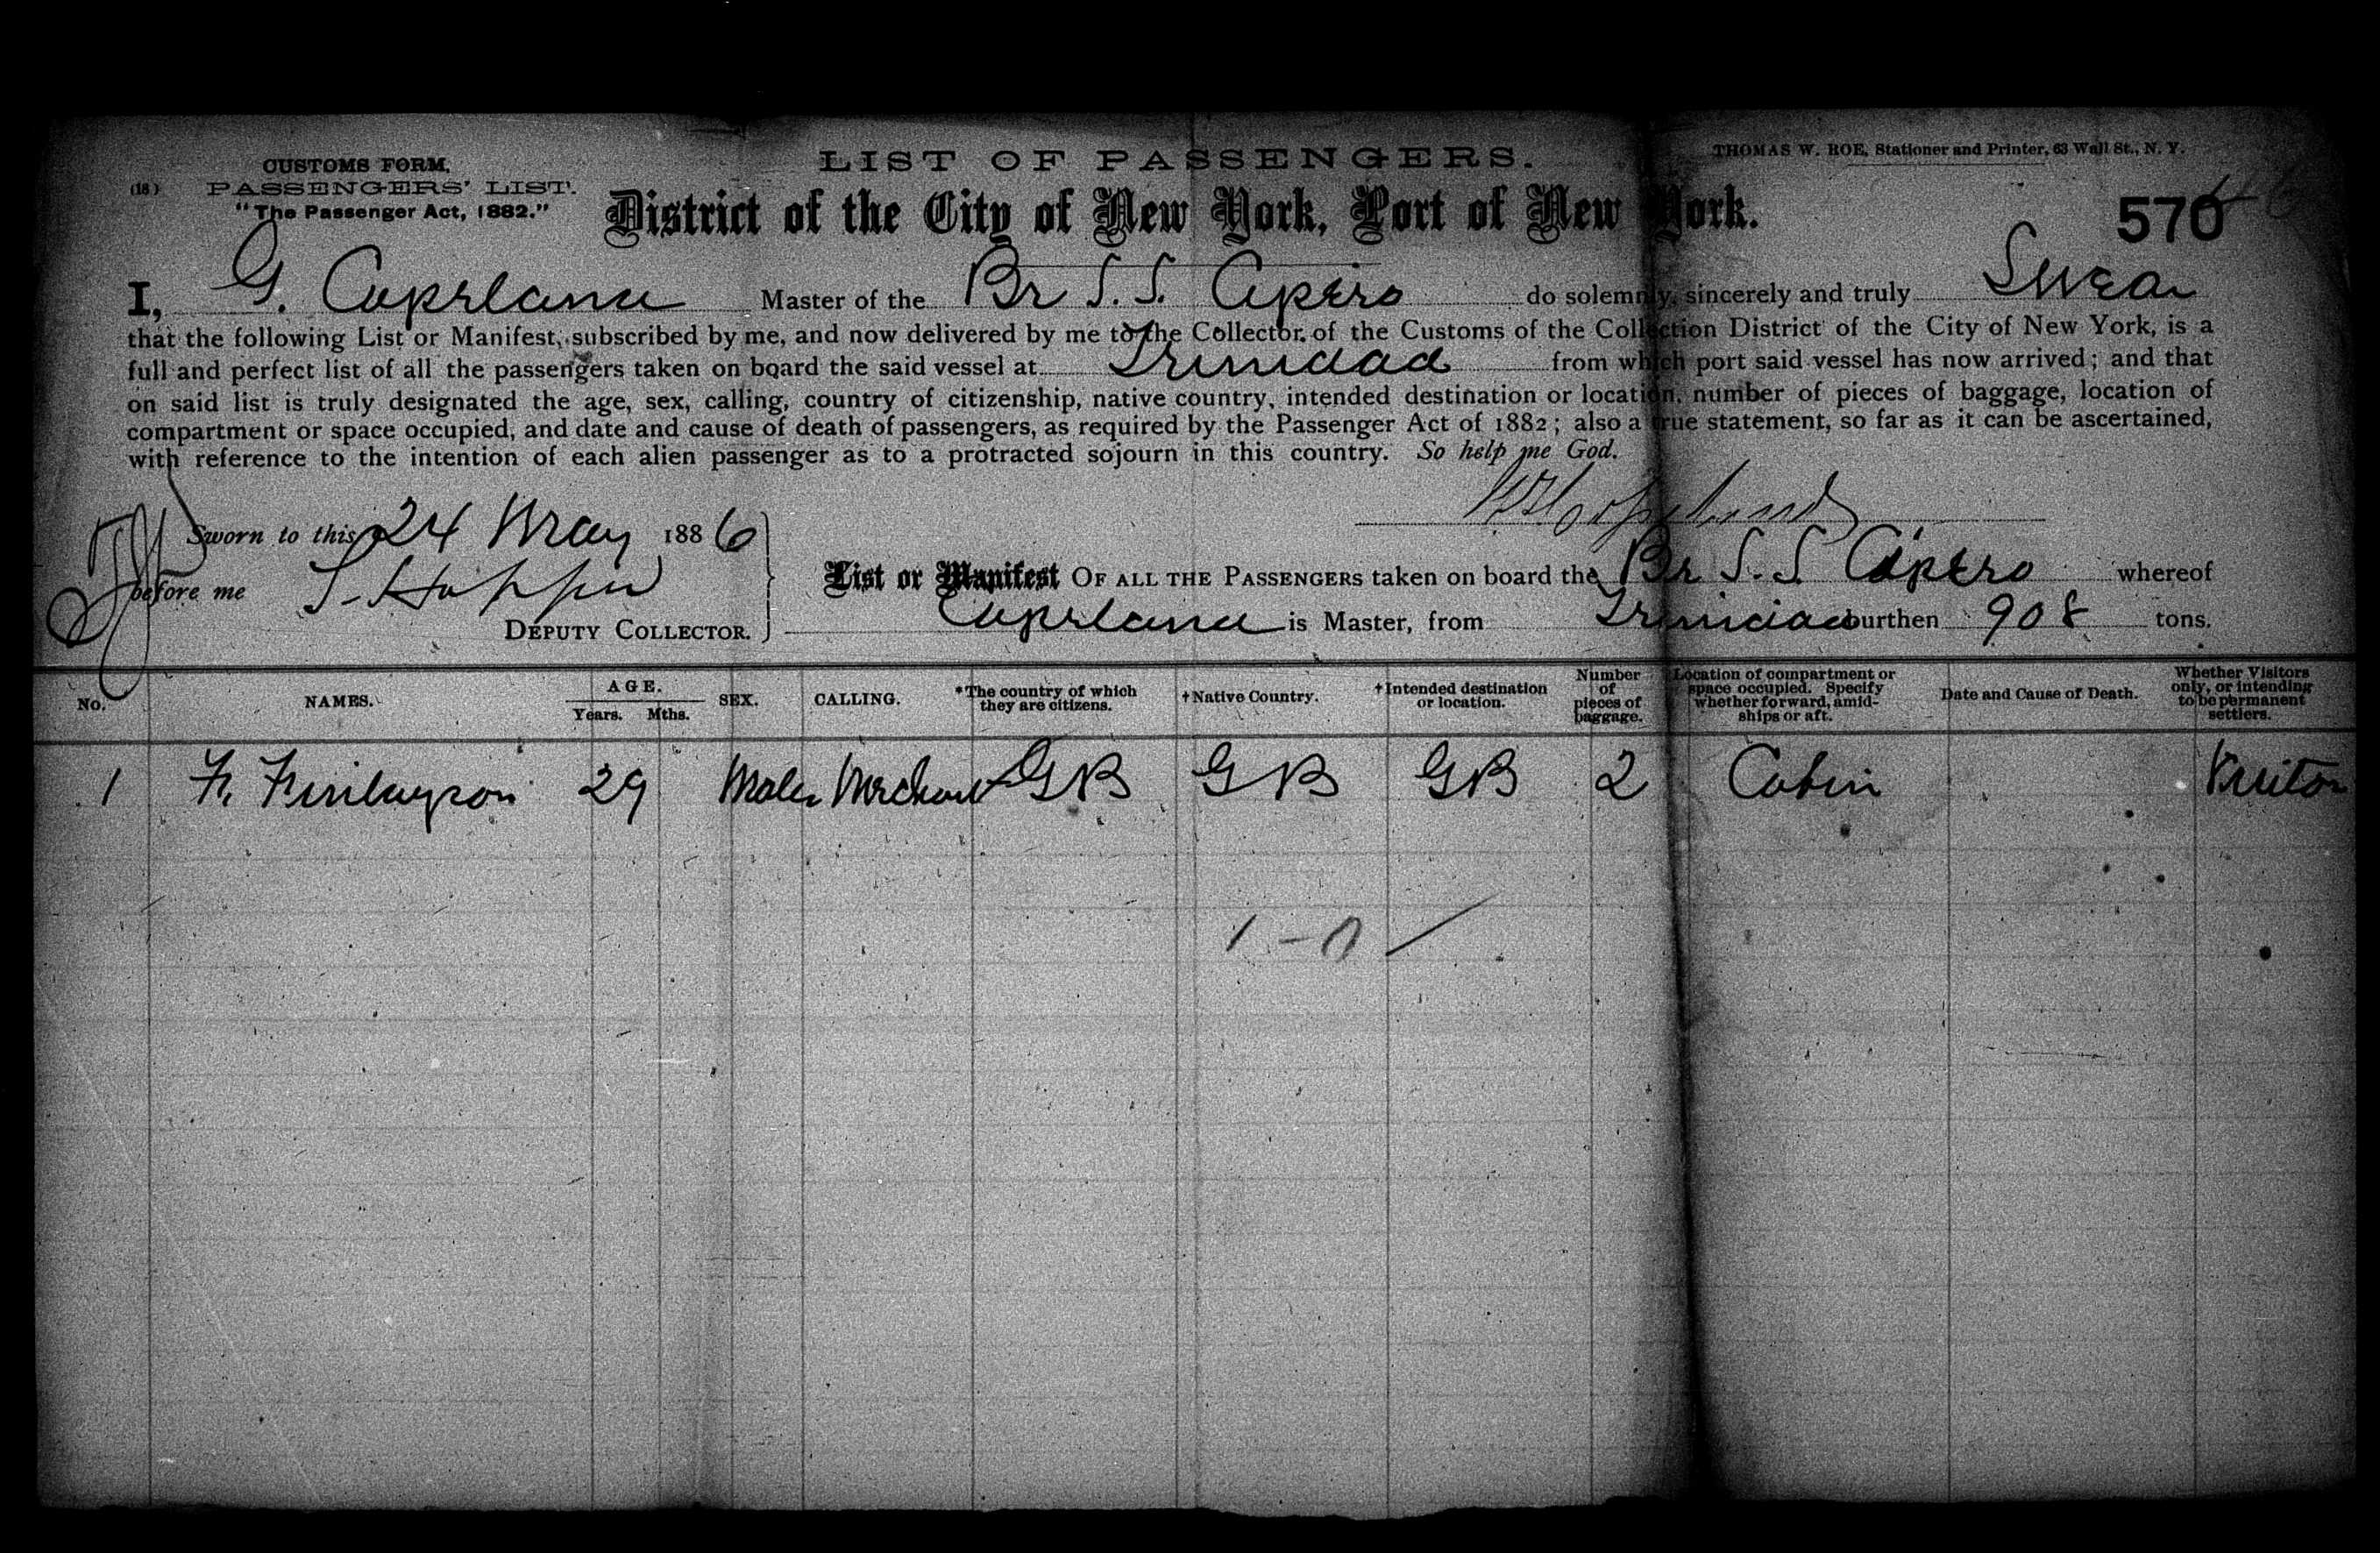 CUSTOMS FORM.
(18) PASSENGERS' LIST.
"The Passenger Act, 1882."
LIST OF PASSENGERS.
THOMAS W. ROE, Stationer and Printer, 63 Wall St., N. Y.
District of the City of New York, Port of New York.
570
I, G. Copeland Master of the Br S. S. Cipero do solemnly, sincerely and truly Swear
that the following List or Manifest, subscribed by me, and now delivered by me to the Collector of the Customs of the Collection District of the City of New York, is a
full and perfect list of all the passengers taken on board the said vessel at Trinidad from which port said vessel has now arrived; and that
on said list is truly designated the age, sex, calling, country of citizenship, native country, intended destination or location, number of pieces of baggage, location of
compartment or space occupied, and date and cause of death of passengers, as required by the Passenger Act of 1882; also a true statement, so far as it can be ascertained,
with reference to the intention of each alien passenger as to a protracted sojourn in this country. So help me God.
Sworn to this 24 May 1886
before me
DEPUTY COLLECTOR.
List or Manifest OF ALL THE PASSENGERS taken on board the Br S. S. Cipero whereof
Copeland is Master, from Trinidad burthen 908 tons.
No. NAMES. AGE. Years. Mths. SEX. CALLING. *The country of which they are citizens. †Native Country. †Intended destination or location. Number of pieces of baggage. Location of compartment or space occupied. Specify whether forward, amidships or aft. Date and Cause of Death. Whether Visitors only, or intending to be permanent settlers.
1 F. Finlayson 29 Male Merchant GB GB GB 2 Cabin Visitor
1 - 0 /